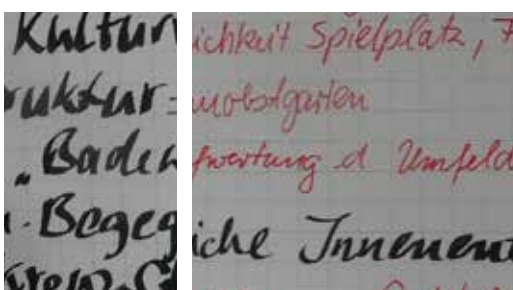 Kultur
ruktur=
„Baden
. Begeg
ichkeit Spielplatz, F
mobstgarten
fwertung d Umfeld
iche Innenen